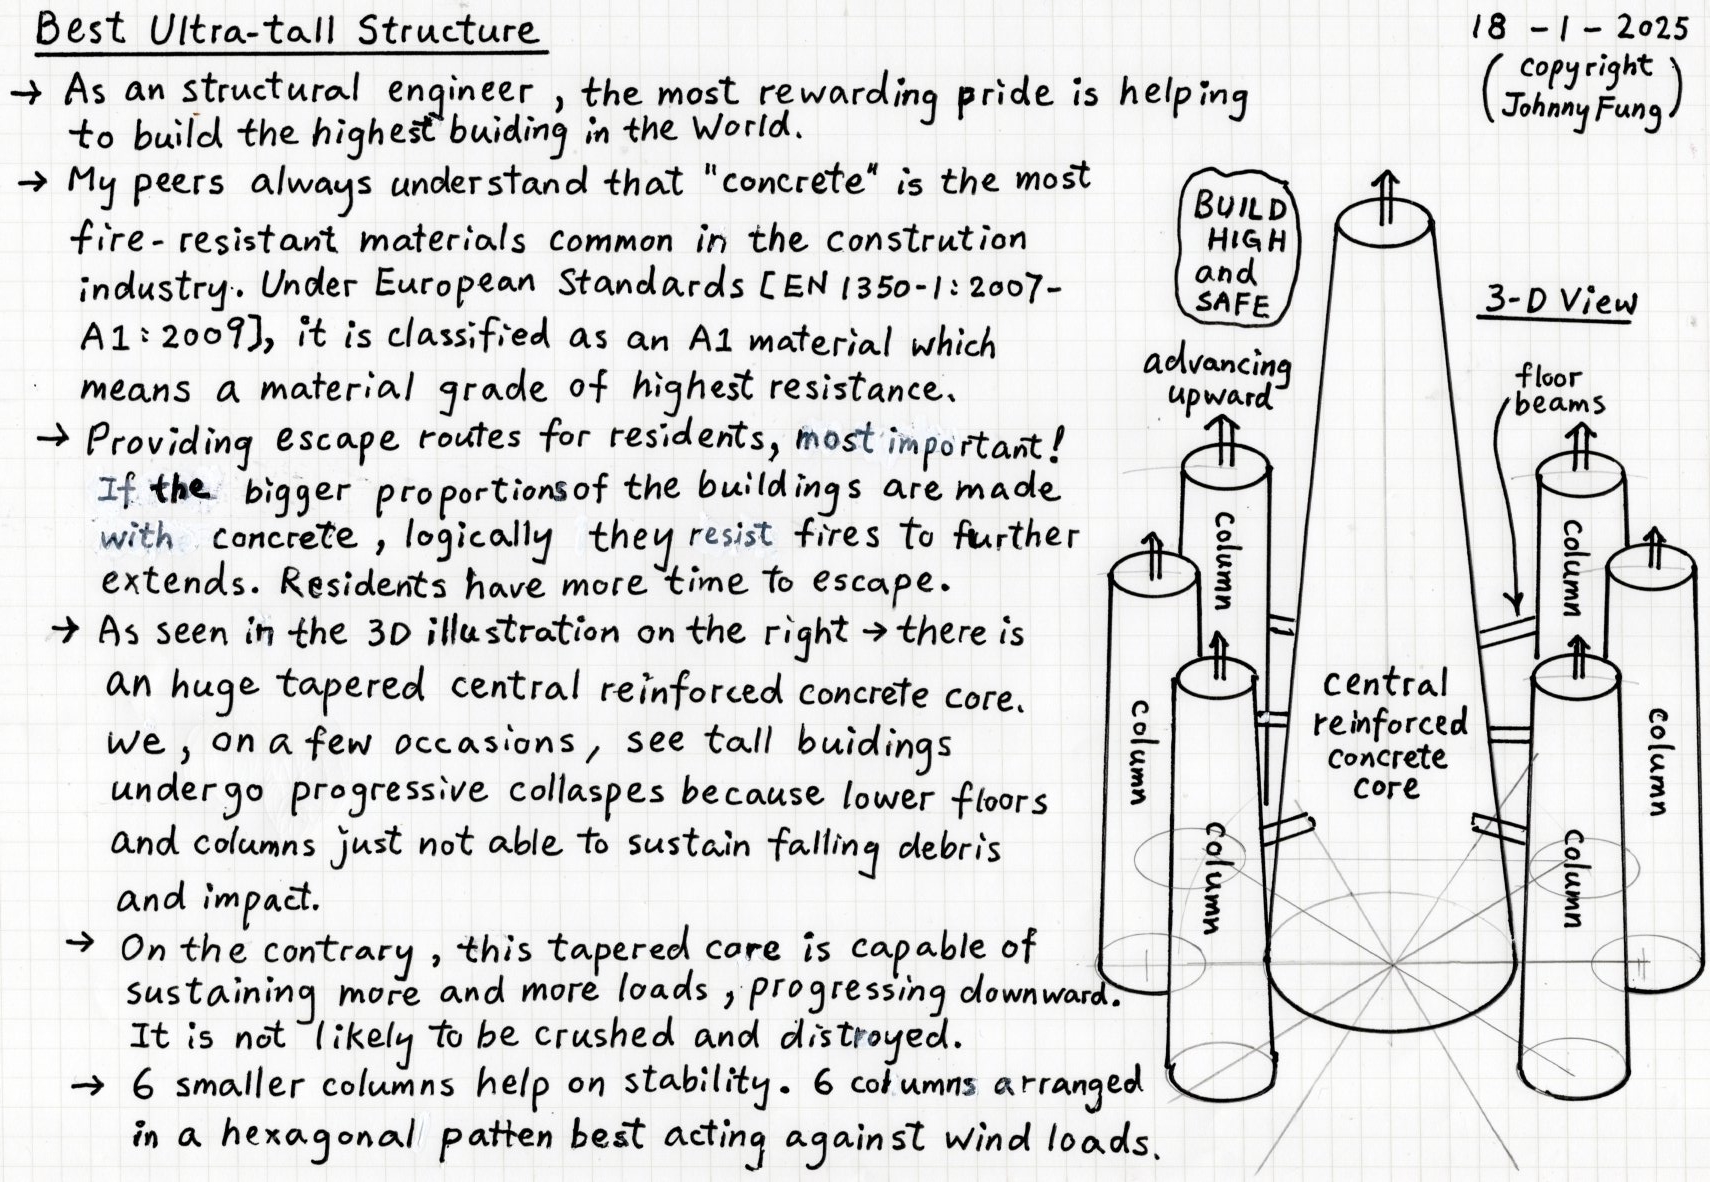 Best Ultra-tall Structure
18 - 1 - 2025
(copyright
Johnny Fung)
→ As an structural engineer, the most rewarding pride is helping
to build the highest buiding in the World.
→ My peers always understand that "concrete" is the most
fire-resistant materials common in the constrution
industry. Under European Standards [EN 1350-1:2007-
A1:2009], it is classified as an A1 material which
means a material grade of highest resistance.
→ Providing escape routes for residents, most important!
If the bigger proportions of the buildings are made
with concrete, logically they resist fires to further
extends. Residents have more time to escape.
→ As seen in the 3D illustration on the right → there is
an huge tapered central reinforced concrete core.
We, on a few occasions, see tall buidings
undergo progressive collaspes because lower floors
and columns just not able to sustain falling debris
and impact.
→ On the contrary, this tapered core is capable of
sustaining more and more loads, progressing downward.
It is not likely to be crushed and distroyed.
→ 6 smaller columns help on stability. 6 columns arranged
in a hexagonal patten best acting against wind loads.
BUILD
HIGH
and
SAFE
3-D View
advancing
upward
floor
beams
column
column
column
column
column
column
central
reinforced
concrete
core